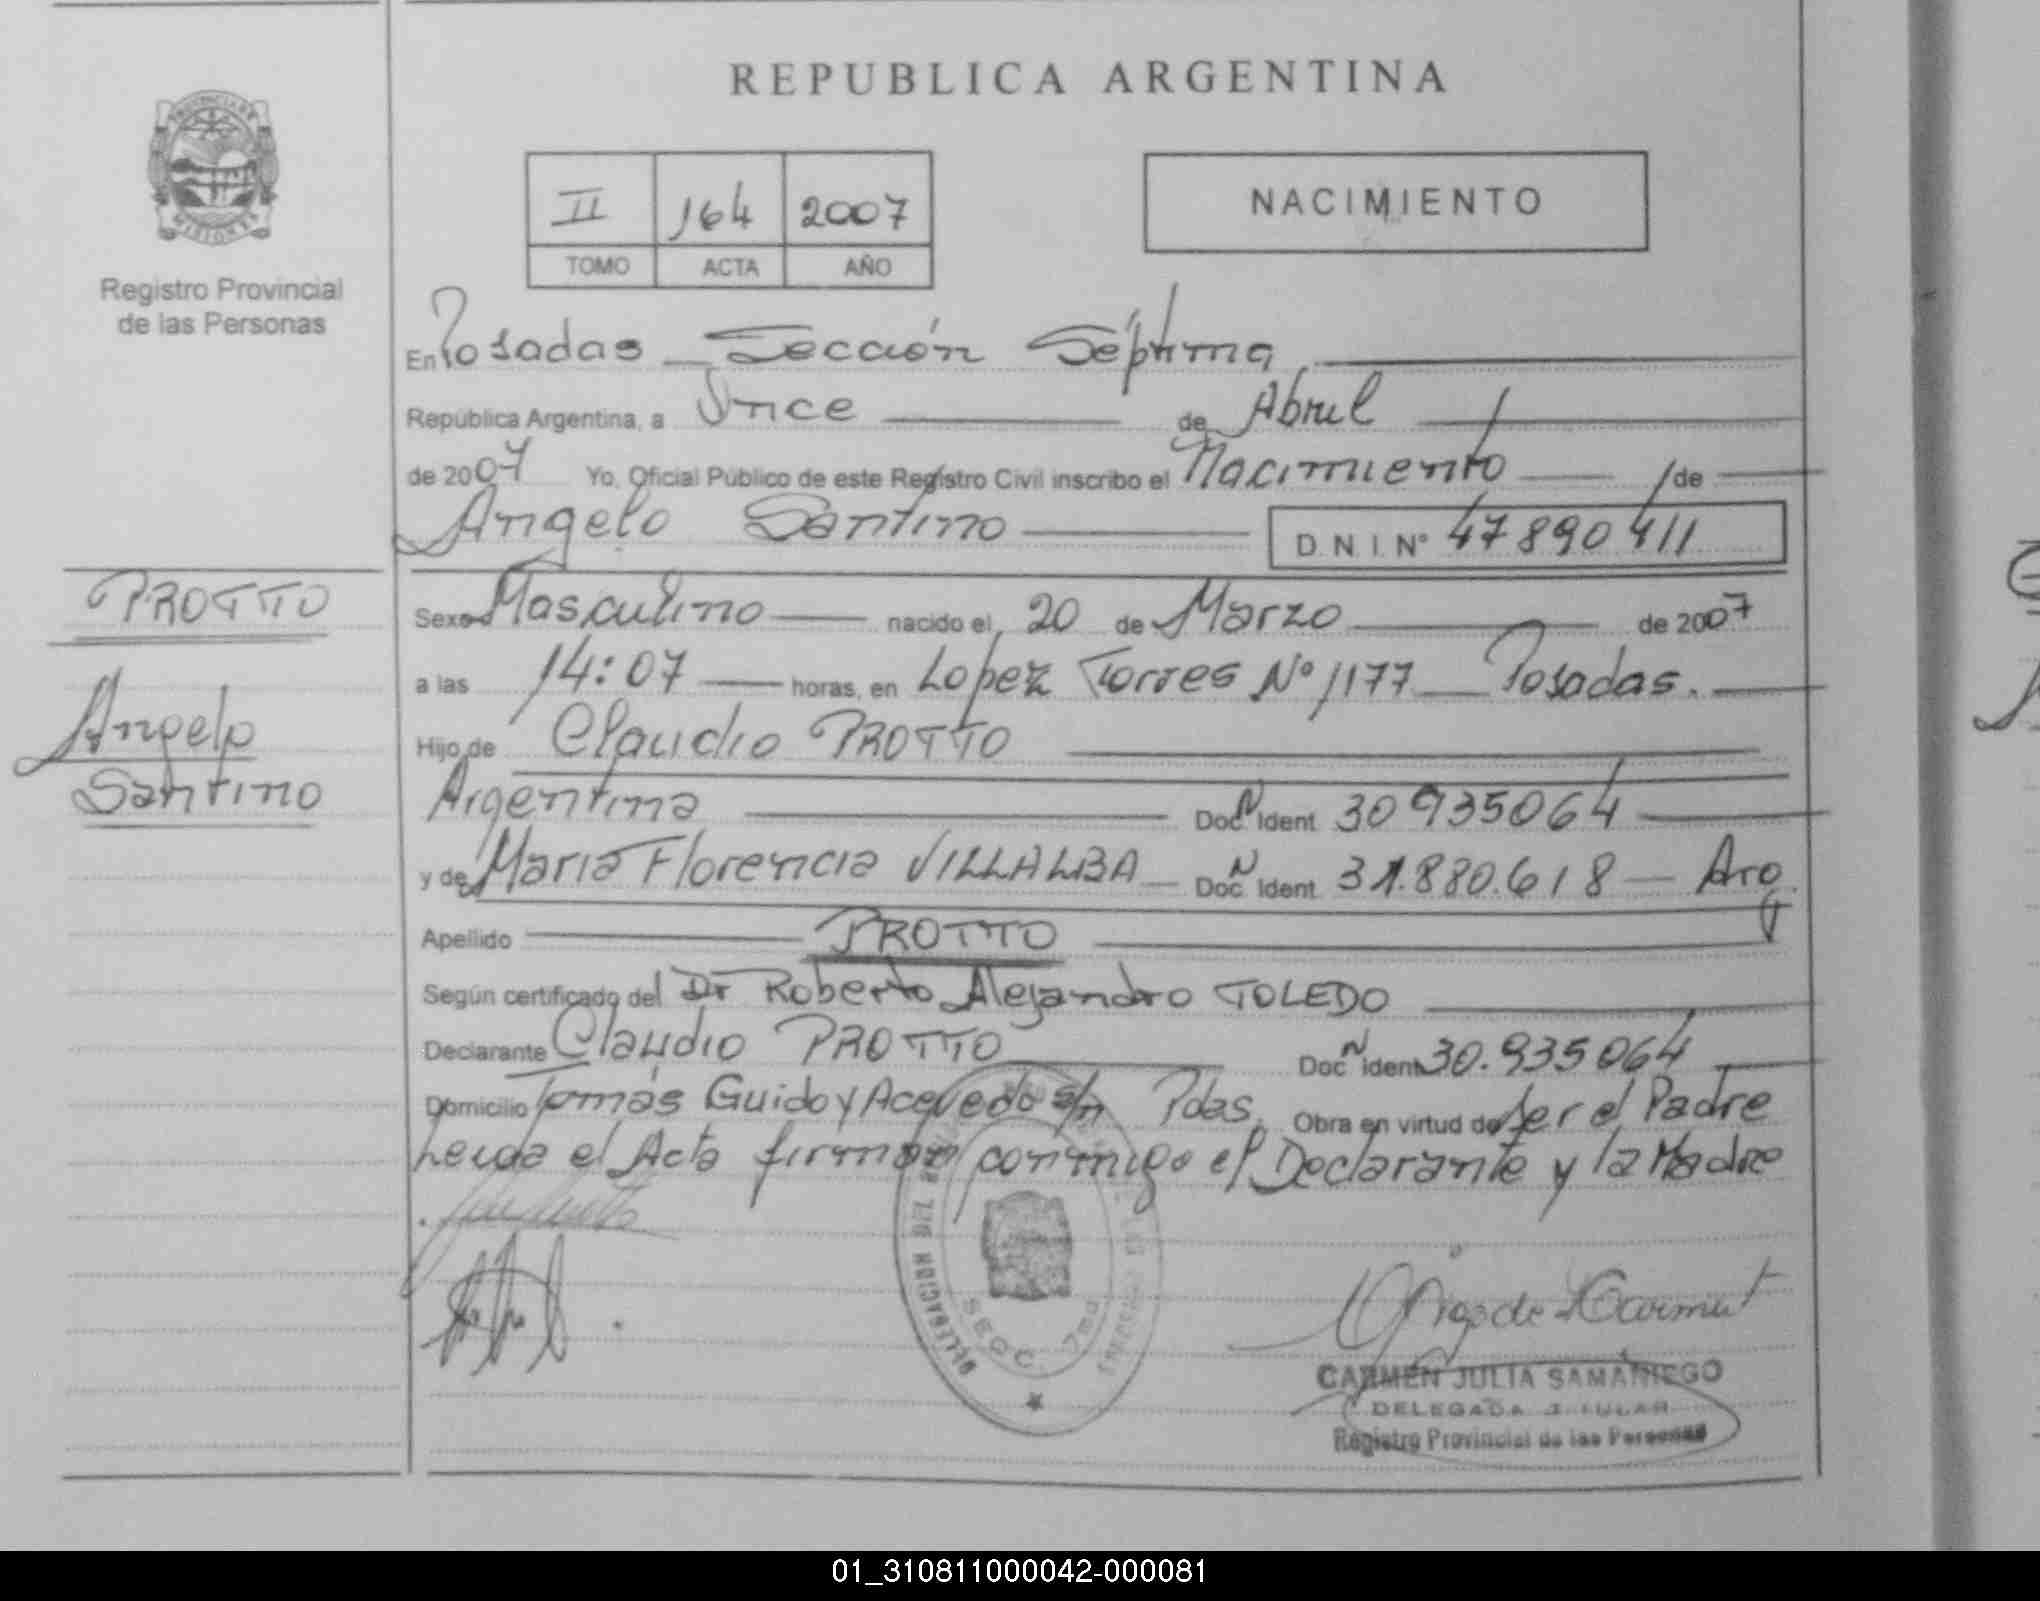 REPUBLICA ARGENTINA
PROVINCIA DE
MISIONES
Registro Provincial
de las Personas
II 164 2007
TOMO ACTA AÑO
NACIMIENTO
En Posadas Sección Séptima
República Argentina, a Once de Abril
de 2007 Yo, Oficial Público de este Registro Civil inscribo el Nacimiento de
Angelo Santino D.N.I. Nº 47890411
PROTTO
Angelo
Santino
Sexo Masculino nacido el 20 de Marzo de 2007
a las 14:07 horas, en Lopez Torres Nº 1177 Posadas.
Hijo de Claudio PROTTO
Argentina Doc N Ident 30935064
y de Maria Florencia VILLALBA Doc N Ident 31.880.618 Arg
Apellido PROTTO
Según certificado del Dr Roberto Alejandro TOLEDO
Declarante Claudio PROTTO Doc N Ident 30.935064
Domicilio Tomás Guido y Acevedo s/n Pdas. Obra en virtud de ser el Padre
Leida el Acta firman conmigo el Declarante y la Madre
DELEGACION DEL REG
SECC. 7ma
CARMEN JULIA SAMANIEGO
DELEGADA TITULAR
Registro Provincial de las Personas
01_310811000042-000081